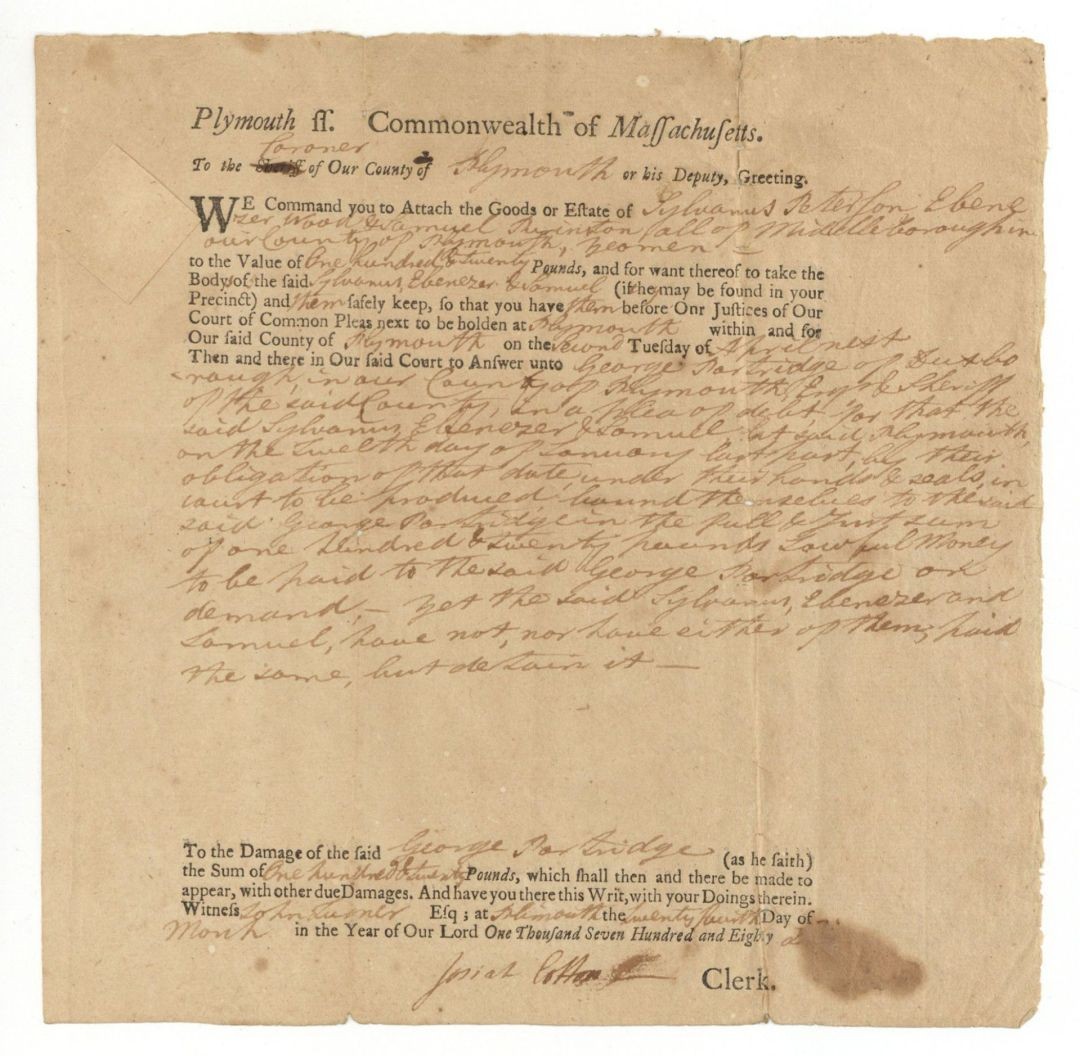 Plymouth ſſ. Commonwealth of Maſſachuſetts.
Coroner
To the Sheriff of Our County of Plymouth or his Deputy, Greeting.
WE Command you to Attach the Goods or Eſtate of Sylvanus Peterson, Ebene
zer Wood & Samuel all of Middleborough in
our County of Plymouth, Yeomen —
to the Value of One hundred & twenty Pounds, and for want thereof to take the
Bodys of the ſaid Sylvanus, Ebenezer & Samuel (if they may be found in your
Precinct) and them ſafely keep, ſo that you have them before Onr Juſtices of Our
Court of Common Pleas next to be holden at Plymouth within and for
Our ſaid County of Plymouth on the second Tueſday of April next
Then and there in Our ſaid Court to Anſwer unto George Partridge of Duxbo
rough, in our County of Plymouth, Esqr & Sheriff
of the said County, in a plea of debt, for that the
said Sylvanus Ebenezer & Samuel at said Plymouth
on the twelth day of January last past, by their
obligation of that date, under their hands & seals, in
court to be produced bound themselves to the said
said George Partridge in the full & Just sum
of one hundred & twenty pounds Lawful Money
to be paid to the said George Partridge on
demand, — yet the said Sylvanus, Ebenezer and
Samuel, have not, nor have either of them, paid
the same, but detain it —
To the Damage of the ſaid George Partridge (as he ſaith)
the Sum of One hundred & twenty Pounds, which ſhall then and there be made to
appear, with other due Damages. And have you there this Writ, with your Doings therein.
Witneſs John Turner Eſq; at Plimouth the twenty fourth Day of
March in the Year of Our Lord One Thouſand Seven Hundred and Eighty
Josiah Cotton Clerk.